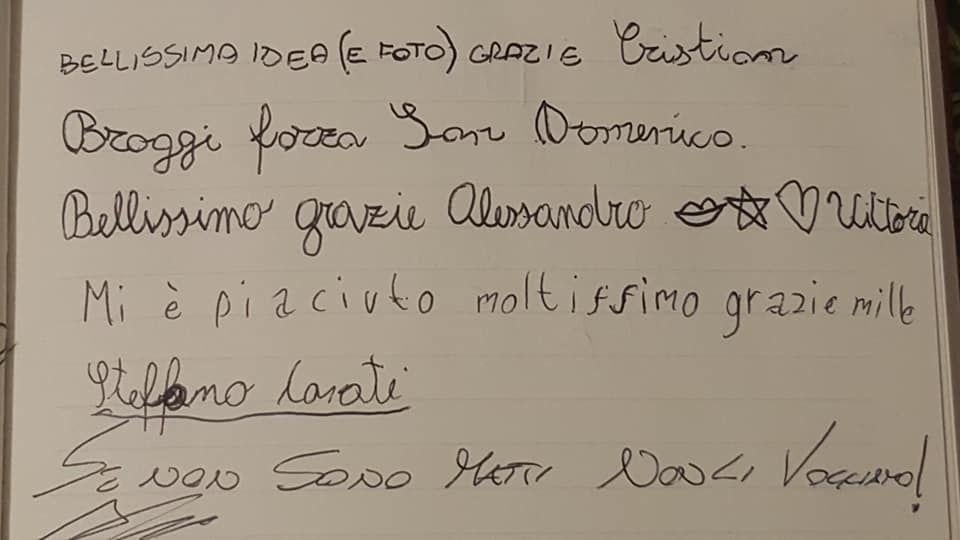 BELLISSIMA IDEA (E FOTO) GRAZIE Cristian
Broggi forza San Domenico.
Bellissimo grazie Alessandro Vittoria
Mi è piaciuto moltissimo grazie mille
Steffano Carati
SE NON SONO MATTI NON LI VOGLIAMO!